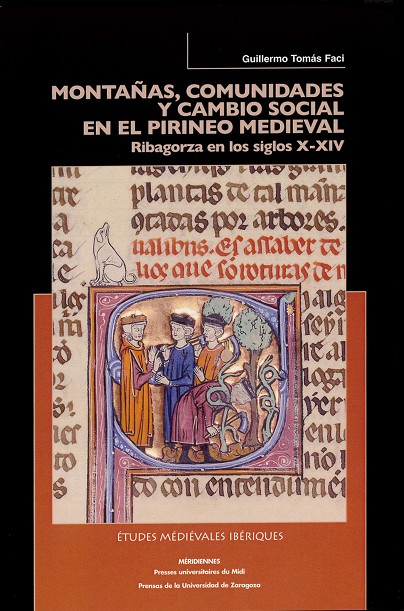 Guillermo Tomás Faci
MONTAÑAS, COMUNIDADES
Y CAMBIO SOCIAL
EN EL PIRINEO MEDIEVAL
Ribagorza en los siglos X-XIV
plantas de tal man
por arbores.
Es assaber de
los que so roturas de
con entendim
ÉTUDES MÉDIÉVALES IBÉRIQUES
MÉRIDIENNES
Presses universitaires du Midi
Prensas de la Universidad de Zaragoza